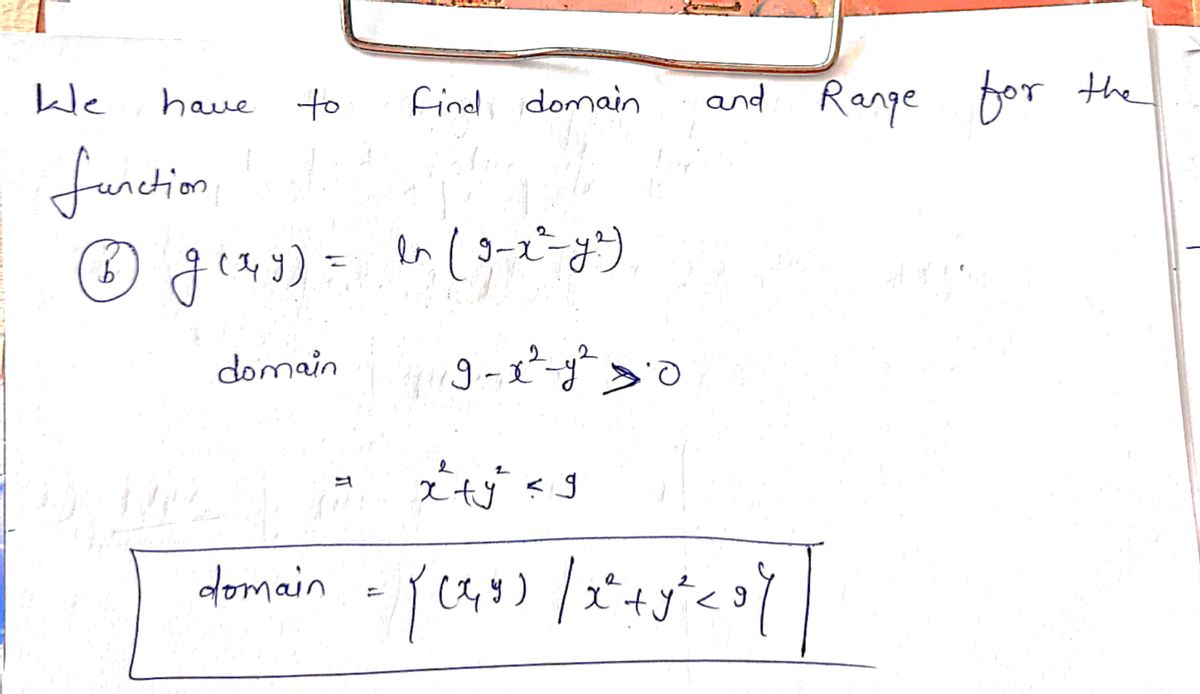 We have to find domain and Range for the
function
(b) g(x,y) = ln(9-x²-y²)
domain 9-x²-y² > 0
= x²+y² < 9
domain = {(x,y) / x²+y² < 9}